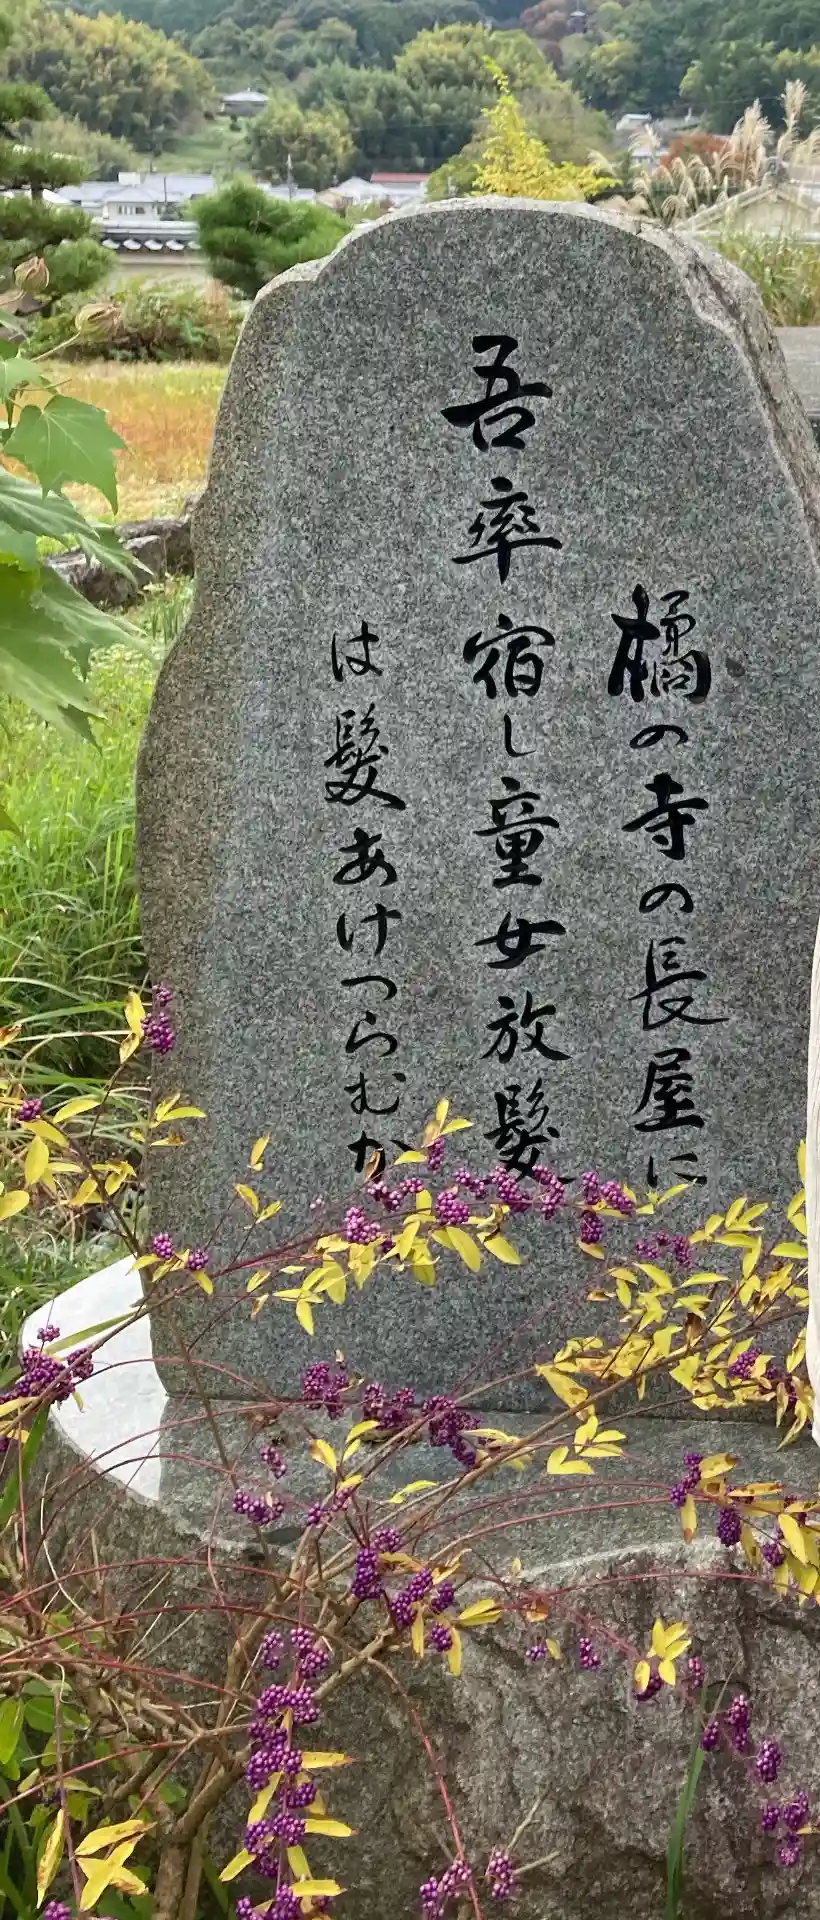 橘の寺の長屋に
吾率宿し童女放髪
は髪あけつらむか